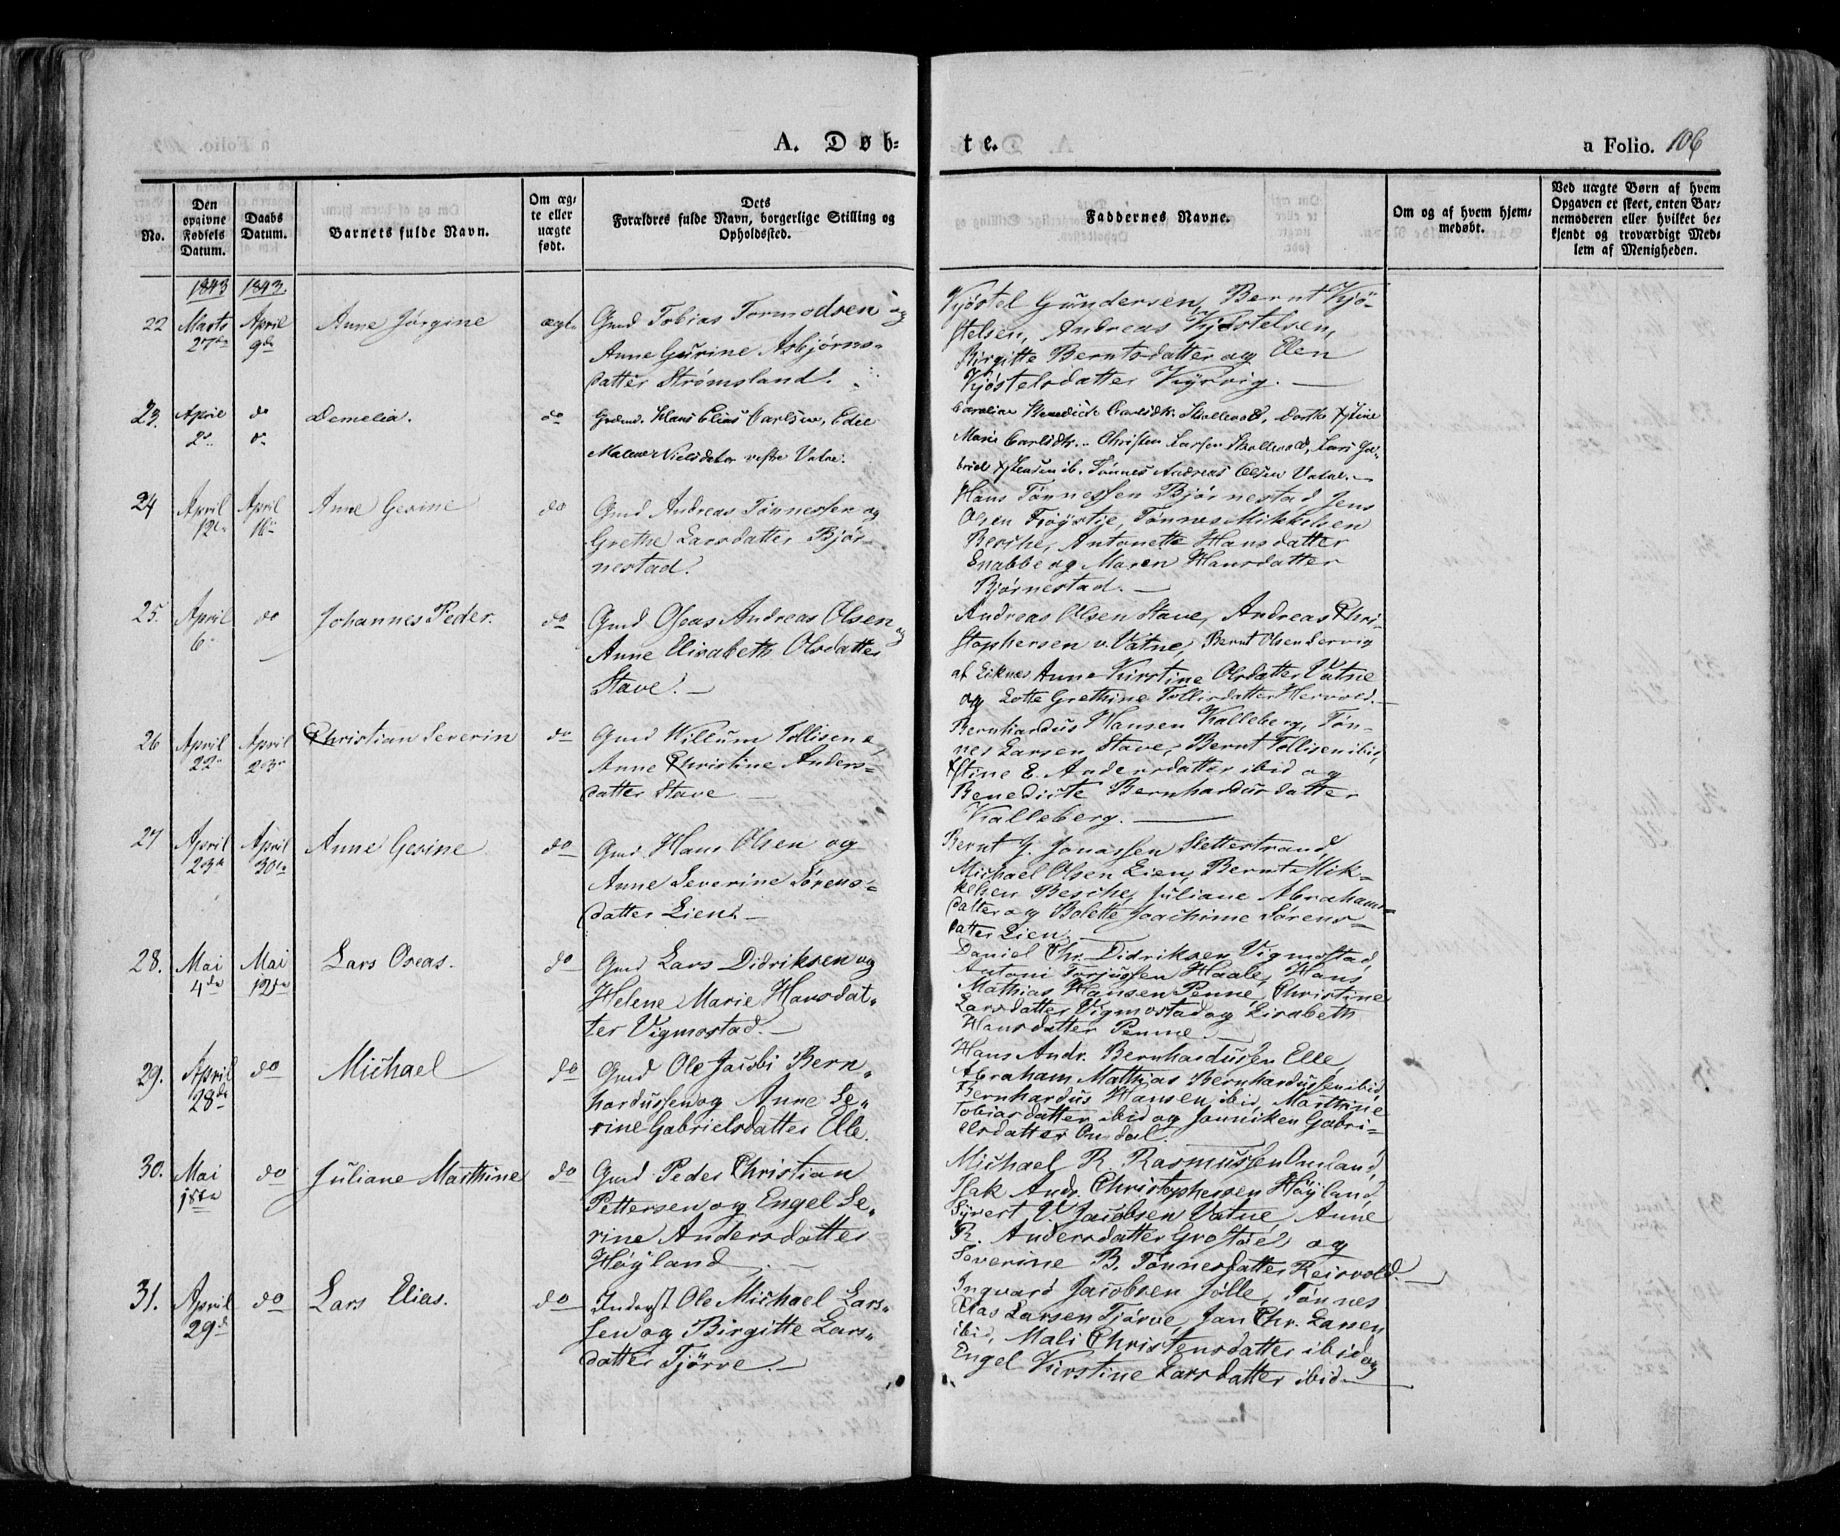 A. Døb=
te.
a Folio. 106
No.
Den
opgivne
Fødsels
Datum.
Daabs
Datum.
Barnets fulde Navn.
Om æg=
te eller
uægte
født.
Dets
Forældres fulde Navn, borgerlige Stilling og
Opholdssted.
Faddernes Navne.
Om og af hvem hjem=
medøbt.
Ved uægte Børn af hvem
Opgaven er skeet, enten Bar=
nemoderen eller hvilket be=
kjendt og troværdigt Med=
lem af Menigheden.
1843 1843.
22 Marts 27de April 9de Anne Jørgine ægte
Gmd Tobias Tormodsen og
Anne Gurine Asbjørns=
datter Strømsland.
Kjøstel Gundersen, Bernt Kjø=
stelsen, Andreas Kjøstelsen,
Birgitte Berntsdatter og Elen
Kjøstelsdatter Kyrvig. —
23. April 2den do do Demelia. do
Gaardm. Hans Elias Carlsen, Edle
Malene Nielsdatter vestre Vatne.
Caroline Benedicte Carlsdtr. Skollevold, Dorthe Xstine
Marie Carlsdtr. Christen Larsen Skollevold, Lars Ga=
briel Jensen ib. Tønnes Andreas Olsen Vatne. —
24 April 12te April 16de Anne Gesine do
Gmd Andreas Tønnessen og
Grethe Larsdatter Bjør=
nestad.
Hans Tønnessen Bjørnestad, Jens
Olsen Frøystie, Tønnes Mikkelsen
Besche, Antonette Hansdatter
Enabbe og Maren Hansdatter
Bjørnestad. —
25. April 6te do Johannes Peder. do
Gmd Oseas Andreas Olsen og
Anne Elisabeth Olsdatter
Stave. —
Andreas Olsen Stave, Andreas Chri=
stophersen v. Vatne, Bernt Olsen Dervig
af Eiknes Anne Kirstine Olsdatter Vatne
og Lotte Grethine Tollisdatter Hervold. —
26 April 22de April 23de Christian Severin do
Gmd Willum Tollisen &
Anne Christine Anders=
datter Stave —
Bernhardus Hansen Kalleberg, Tøn=
nes Larsen Stave, Bernt Tollisen ibid,
Xstine E. Andersdatter ibid og
Benedicte Bernhardusdatter
Kalleberg. —
27 April 23de April 30te Anne Gesine do
Gmd Hans Olsen og
Anne Severine Sørens=
datter Lien. —
Bernt J. Jonassen Slettestrand,
Michael Olsen Lien, Bernt Mik=
kelsen Besche, Juliane Abrahams=
datter og Bolette Joachime Sørens=
datter Lien. —
28. Mai 4de Mai 12te Lars Oseas. do
Gmd Lars Didriksen og
Helene Marie Hansdat=
ter Vigmostad. —
Daniel Chr. Didriksen Vigmostad,
Antoni Torjussen Haale, Hans
Mathias Hansen Penne, Christine
Larsdatter Vigmostad og Lisabeth
Hansdatter Penne —
29. April 28de do Michael do
Gmd Ole Jacobi Bern=
hardussen og Anne Se=
rine Gabrielsdatter Elle.
Hans Andr. Bernhardussen Elle,
Abraham Mathias Bernhardussen ibid,
Bernhardus Hansen ibid, Marthine
Tobiasdatter ibid og Janniken Gabri=
elsdatter Omdal.
30. Mai 18te do Juliane Marthine do
Gmd Peder Christian
Pettersen og Engel Se=
rine Andersdatter
Høyland —
Michael R. Rasmussen Omland,
Isak Andr. Christophersen Høyland,
Syvert V. Jacobsen Vatne, Anne
R. Andersdatter Grostøe og
Severine B. Tønnesdatter Reisvold. —
31. April 29de do Lars Elias. do
Inderst Ole Michael Lars=
sen og Birgitte Lars=
datter Tjørve. —
Ingvard Jacobsen Jølle, Tønnes
Elias Larsen Tjørve, Jan Chr. Larsen
ibid, Mali Christensdatter ibid og
Engel Kirstine Larsdatter ibid —